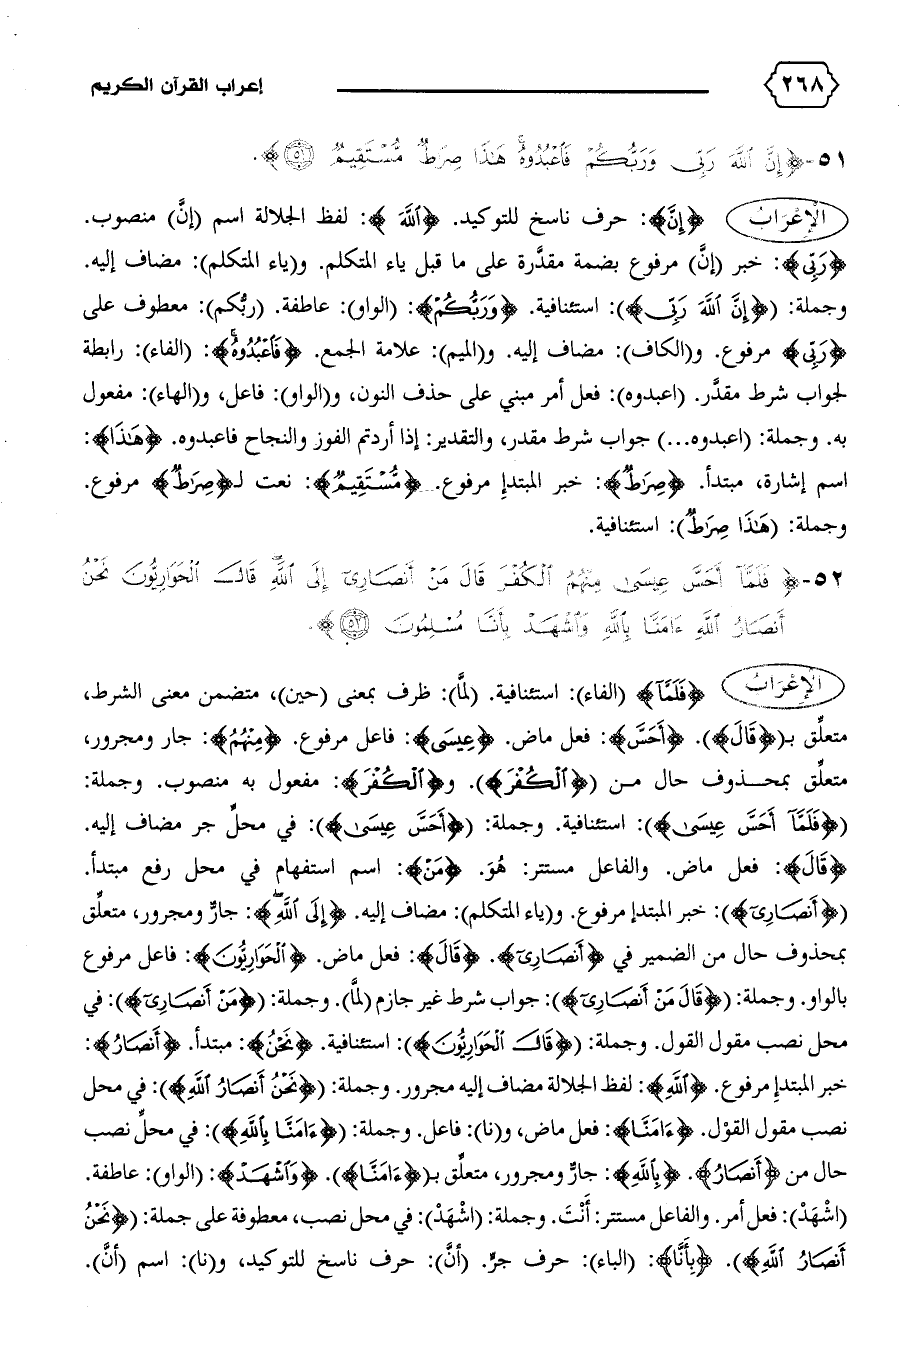 ٢٦٨ إعراب القرآن الكريم
٥١-﴿إِنَّ ٱللَّهَ رَبِّى وَرَبُّكُمْ فَٱعْبُدُوهُ هَٰذَا صِرَٰطٌ مُّسْتَقِيمٌ ٥١﴾.
الإعْرَابُ ﴿إِنَّ﴾: حرف ناسخ للتوكيد. ﴿ٱللَّهَ﴾: لفظ الجلالة اسم (إنَّ) منصوب.
﴿رَبِّى﴾: خبر (إنَّ) مرفوع بضمة مقدَّرة على ما قبل ياء المتكلم. و(ياء المتكلم): مضاف إليه.
وجملة: (﴿إِنَّ ٱللَّهَ رَبِّى﴾): استئنافية. ﴿وَرَبُّكُمْ﴾: (الواو): عاطفة. (ربُّكم): معطوف على
﴿رَبِّى﴾ مرفوع. و(الكاف): مضاف إليه. و(الميم): علامة الجمع. ﴿فَٱعْبُدُوهُ﴾: (الفاء): رابطة
لجواب شرط مقدَّر. (اعبدوه): فعل أمر مبني على حذف النون، و(الواو): فاعل، و(الهاء): مفعول
به. وجملة: (اعبدوه...) جواب شرط مقدر، والتقدير: إذا أردتم الفوز والنجاح فاعبدوه. ﴿هَٰذَا﴾:
اسم إشارة، مبتدأ. ﴿صِرَٰطٌ﴾: خبر المبتدإ مرفوع. ﴿مُّسْتَقِيمٌ﴾: نعت لـ﴿صِرَٰطٌ﴾ مرفوع.
وجملة: (هَٰذَا صِرَٰطٌ): استئنافية.
٥٢-﴿ فَلَمَّآ أَحَسَّ عِيسَىٰ مِنْهُمُ ٱلْكُفْرَ قَالَ مَنْ أَنصَارِىٓ إِلَى ٱللَّهِ قَالَ ٱلْحَوَارِيُّونَ نَحْنُ
أَنصَارُ ٱللَّهِ ءَامَنَّا بِٱللَّهِ وَٱشْهَدْ بِأَنَّا مُسْلِمُونَ ٥٢﴾.
الإعْرَابُ ﴿فَلَمَّآ﴾ (الفاء): استئنافية. (لمَّا): ظرف بمعنى (حين)، متضمن معنى الشرط،
متعلِّق بـ(﴿قَالَ﴾). ﴿أَحَسَّ﴾: فعل ماض. ﴿عِيسَى﴾: فاعل مرفوع. ﴿مِنْهُمُ﴾: جار ومجرور،
متعلِّق بمحذوف حال من (﴿ٱلْكُفْرَ﴾). و﴿ٱلْكُفْرَ﴾: مفعول به منصوب. وجملة:
(﴿فَلَمَّآ أَحَسَّ عِيسَىٰ﴾): استئنافية. وجملة: (﴿أَحَسَّ عِيسَىٰ﴾): في محلِّ جر مضاف إليه.
﴿قَالَ﴾: فعل ماض. والفاعل مستتر: هُوَ. ﴿مَنْ﴾: اسم استفهام في محل رفع مبتدأ.
(﴿أَنصَارِىٓ﴾): خبر المبتدإ مرفوع. و(ياء المتكلم): مضاف إليه. ﴿إِلَى ٱللَّهِ﴾: جارٌّ ومجرور، متعلِّق
بمحذوف حال من الضمير في ﴿أَنصَارِىٓ﴾. ﴿قَالَ﴾: فعل ماض. ﴿ٱلْحَوَارِيُّونَ﴾: فاعل مرفوع
بالواو. وجملة: (﴿قَالَ مَنْ أَنصَارِىٓ﴾): جواب شرط غير جازم (لمَّا). وجملة: (﴿مَنْ أَنصَارِىٓ﴾): في
محل نصب مقول القول. وجملة: (﴿قَالَ ٱلْحَوَارِيُّونَ﴾): استئنافية. ﴿نَحْنُ﴾: مبتدأ. ﴿أَنصَارُ﴾:
خبر المبتدإ مرفوع. ﴿ٱللَّهِ﴾: لفظ الجلالة مضاف إليه مجرور. وجملة: (﴿نَحْنُ أَنصَارُ ٱللَّهِ﴾): في محل
نصب مقول القوْل. ﴿ءَامَنَّا﴾: فعل ماض، و(نا): فاعل. وجملة: (﴿ءَامَنَّا بِٱللَّهِ﴾): في محلِّ نصب
حال من ﴿أَنصَارُ﴾. ﴿بِٱللَّهِ﴾: جارٌّ ومجرور، متعلِّق بـ(﴿ءَامَنَّا﴾). ﴿وَٱشْهَدْ﴾: (الواو): عاطفة.
(اشْهَدْ): فعل أمر. والفاعل مستتر: أَنْتَ. وجملة: (اشْهَدْ): في محل نصب، معطوفة على جملة: (﴿نَحْنُ
أَنصَارُ ٱللَّهِ﴾). ﴿بِأَنَّا﴾: (الباء): حرف جرٍّ. (أنَّ): حرف ناسخ للتوكيد، و(نا): اسم (أنَّ).